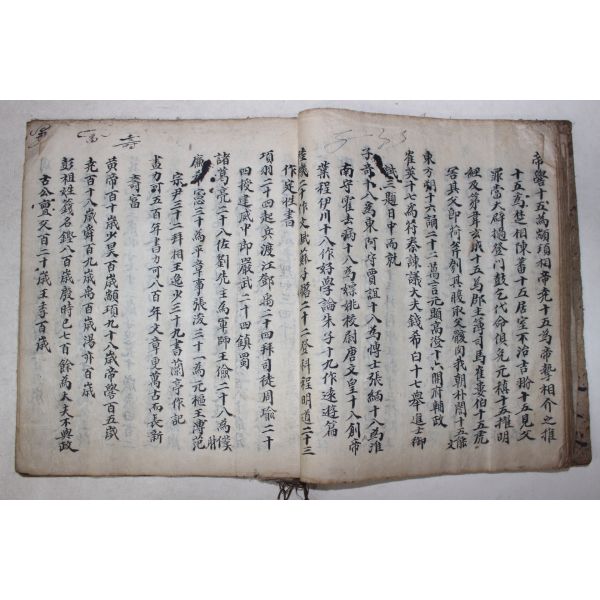 帝嚳十五爲顓頊相帝堯十五爲帝摯相介之推
十五爲楚相陳蕃十五居室不治吉翂十五見父
罪當大辟撾登門鼓乞代命俱免元稹十五擢明
經及第
東方朔十六誦二十二萬言元顯高澄十六開府輔政
崔英十七爲符秦諫議大夫錢希白十七擧進士御
試三題日中而就
子奇十八爲東阿守賈誼十八爲博士張納十八爲淮
南守霍去病十八爲嫖姚校尉唐文皇十八創帝
業程伊川十八作好學論朱子十九作遠遊篇
陸機二十作文賦蘇子瞻二十二登科程明道二十三
作定性書
項羽二十四起兵渡江鄧禹二十四拜司徒周瑜二十
四授建威中郎嚴武二十四鎭蜀
諸葛亮二十八佐劉先主爲軍師王儉二十八爲僕
廉希憲三十爲平章事張浚三十一爲元樞王溥范
宗尹三十二拜相王逸少三十九書蘭亭作記
畫力可五百年書力可八百年文章更萬古而長新
壽富
黃帝百十歲少昊百歲顓頊九十八歲帝嚳百五歲
堯百十八歲舜百九歲禹百歲湯亦百歲
彭祖姓籛名鏗八百歲殷時已七百餘爲大夫不與政
古公亶父百二十歲王季百歲